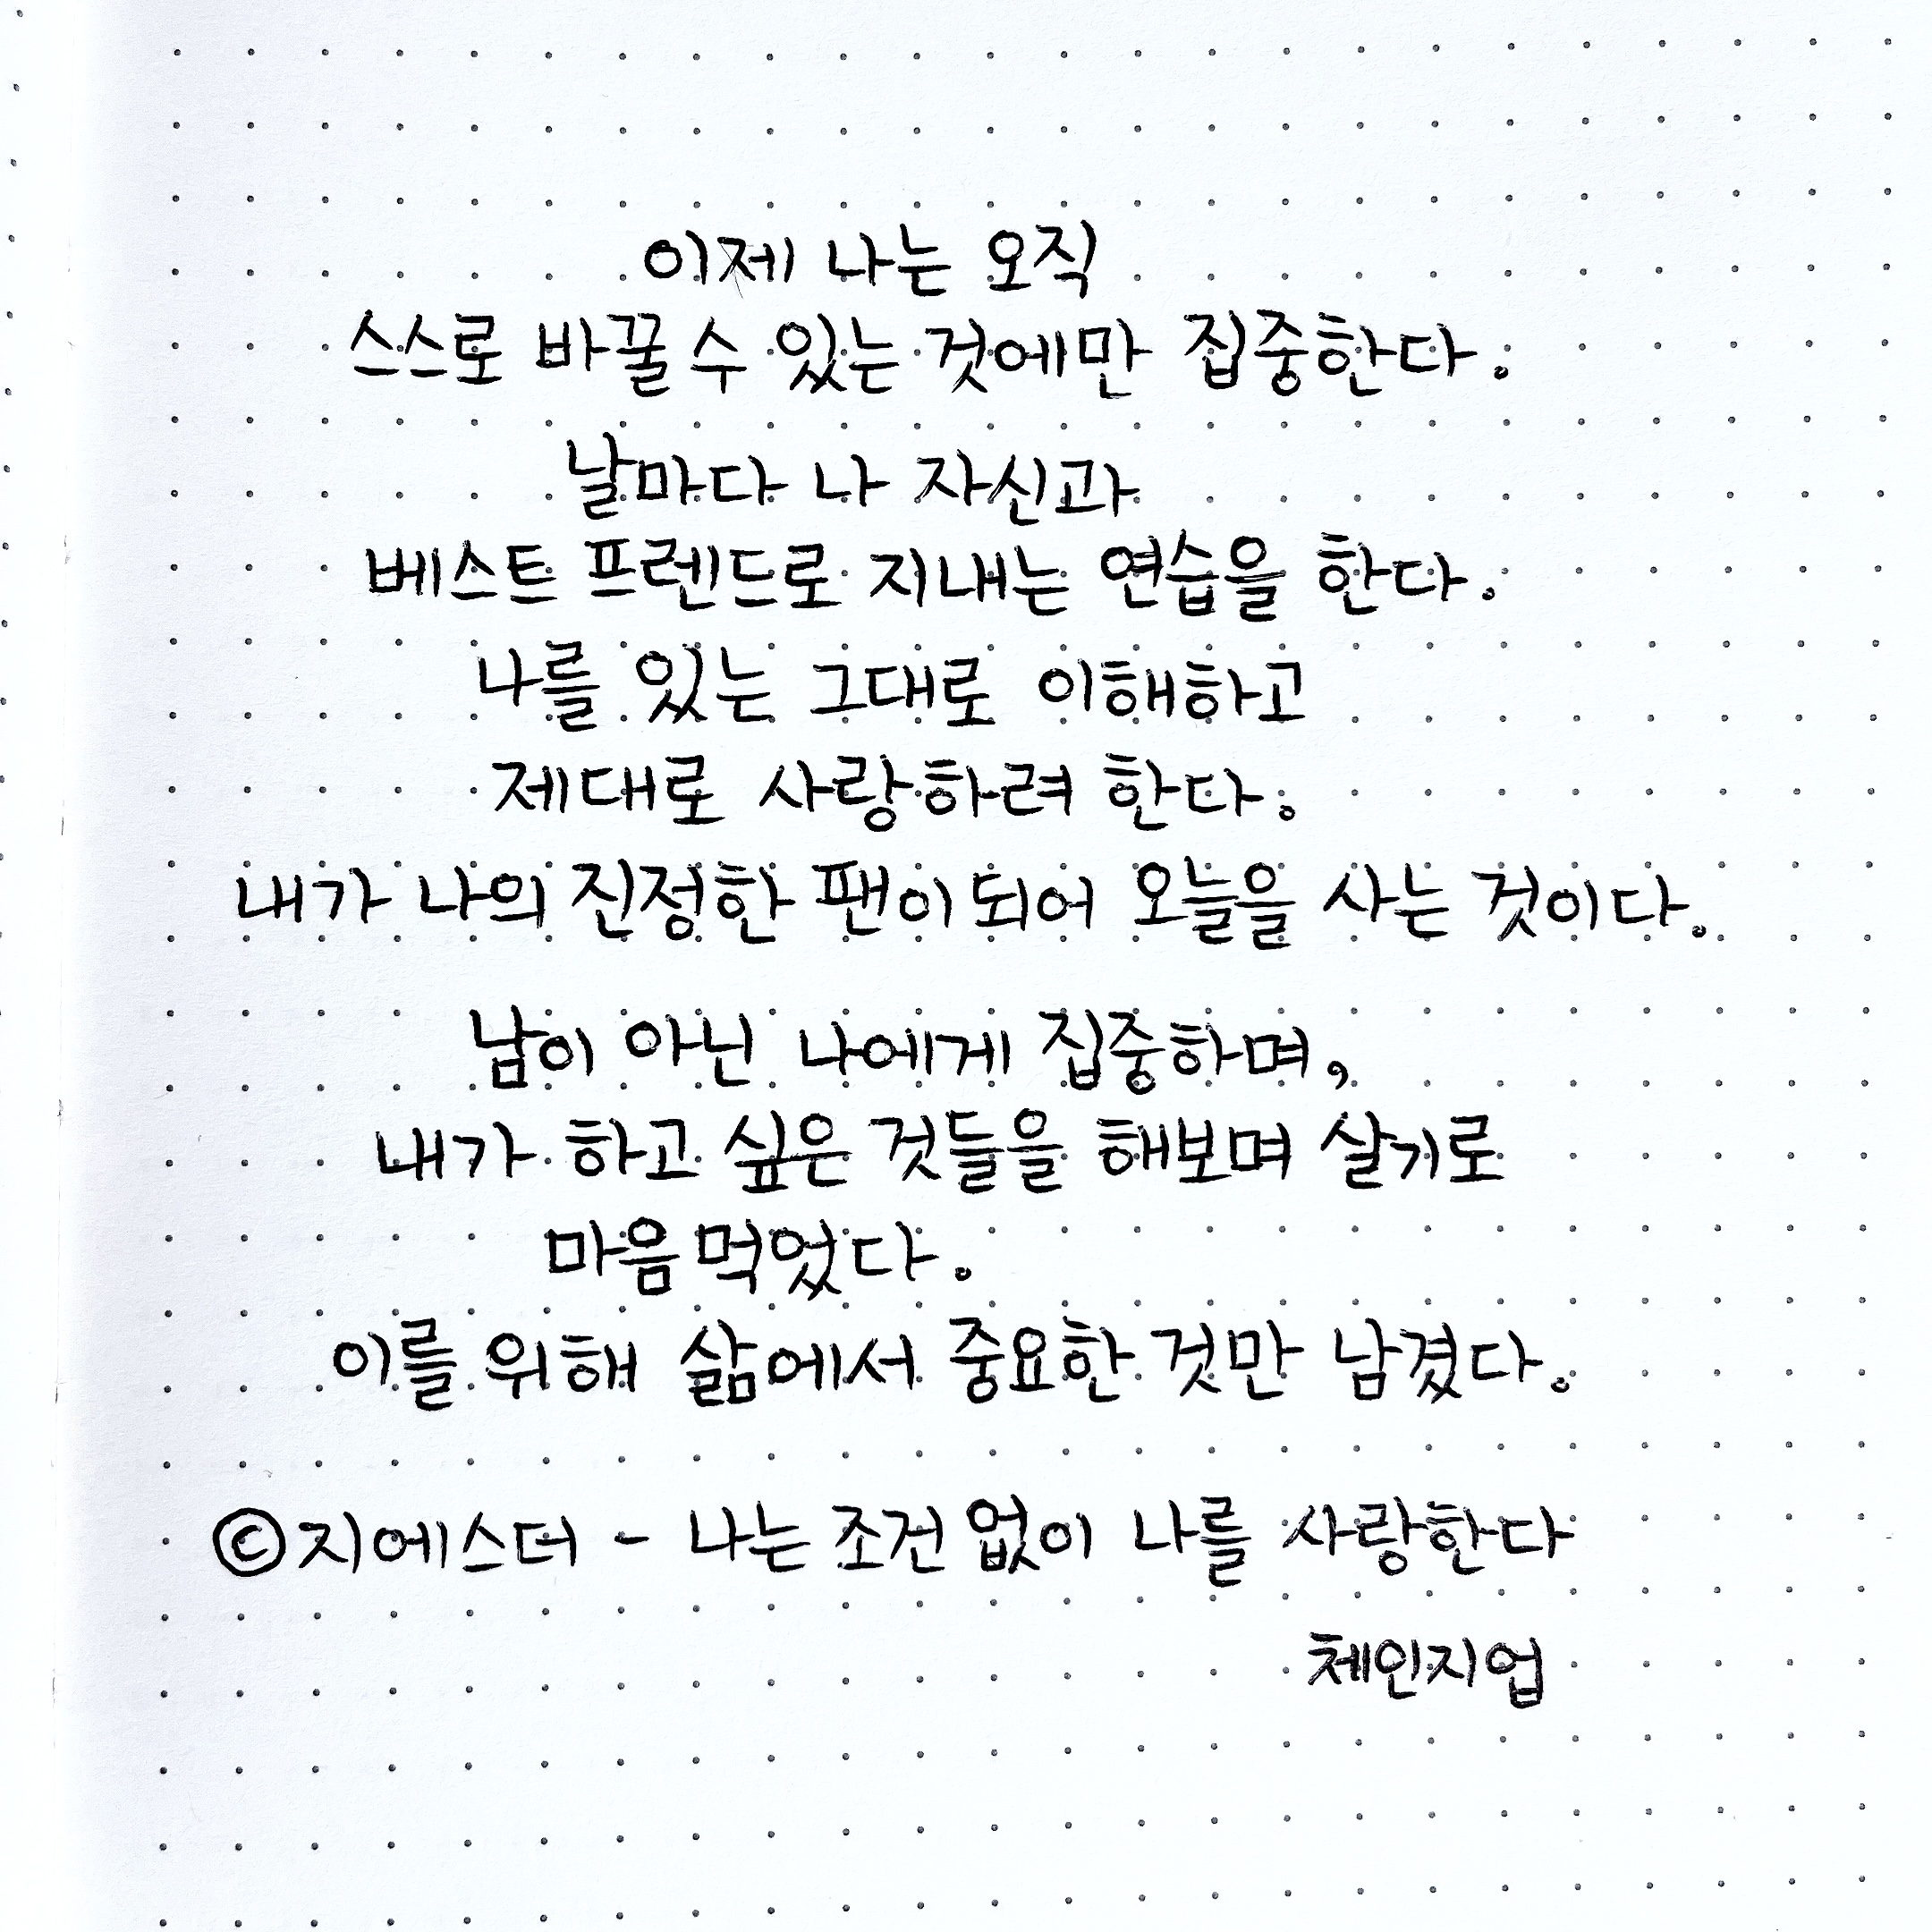 이제 나는 오직
스스로 바꿀 수 있는 것에만 집중한다.
날마다 나 자신과
베스트 프렌드로 지내는 연습을 한다.
나를 있는 그대로 이해하고
제대로 사랑하려 한다.
내가 나의 진정한 팬이 되어 오늘을 사는 것이다.
남이 아닌 나에게 집중하며,
내가 하고 싶은 것들을 해보며 살기로
마음 먹었다.
이를 위해 삶에서 중요한 것만 남겼다.
©지에스더 - 나는 조건 없이 나를 사랑한다
체인지업